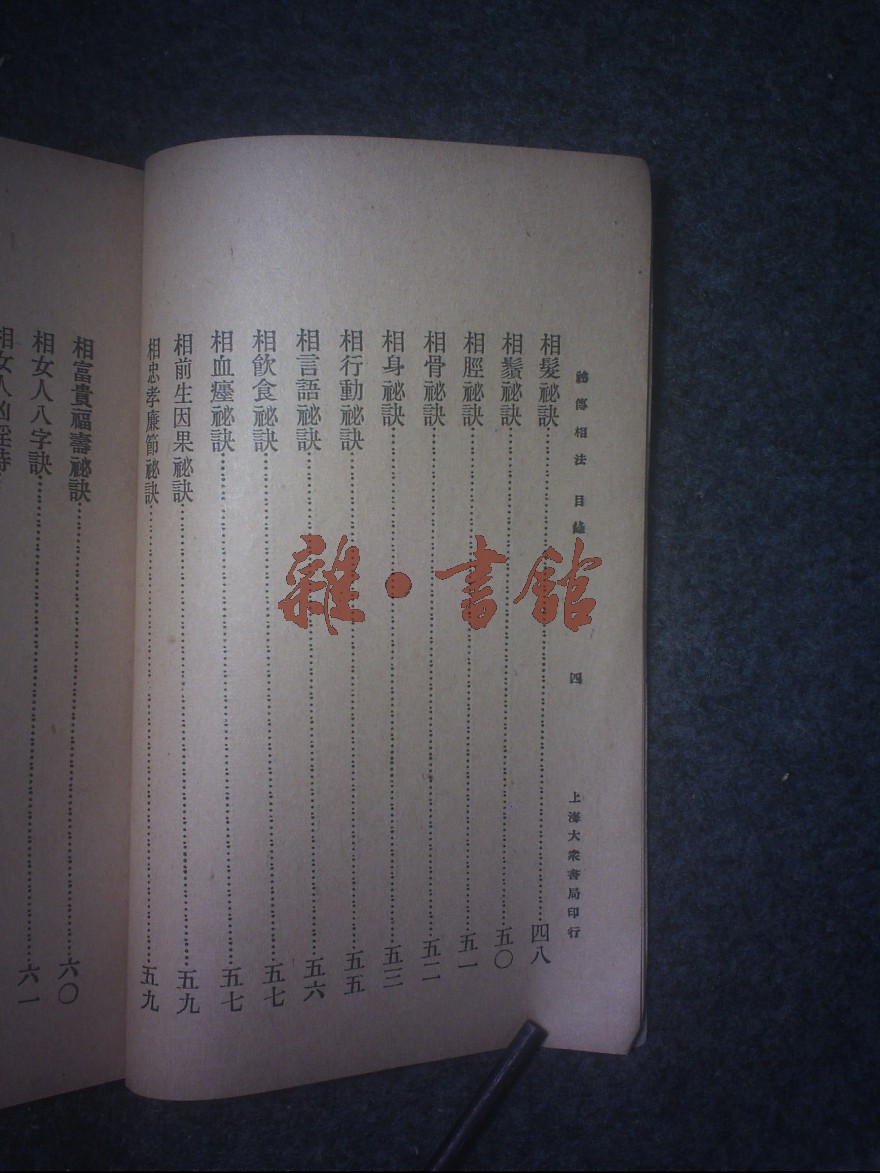 祕傳相法 目錄 四 上海大衆書局印行
相髮祕訣 四八
相鬚祕訣 五〇
相脛祕訣 五一
相骨祕訣 五二
相身祕訣 五三
相行動祕訣 五五
相言語祕訣 五六
相飲食祕訣 五七
相血瘞祕訣 五七
相前生因果祕訣 五九
相忠孝廉節祕訣 五九
相富貴福壽祕訣 六〇
相女人八字訣 六一
相女人凶淫
雜·書館